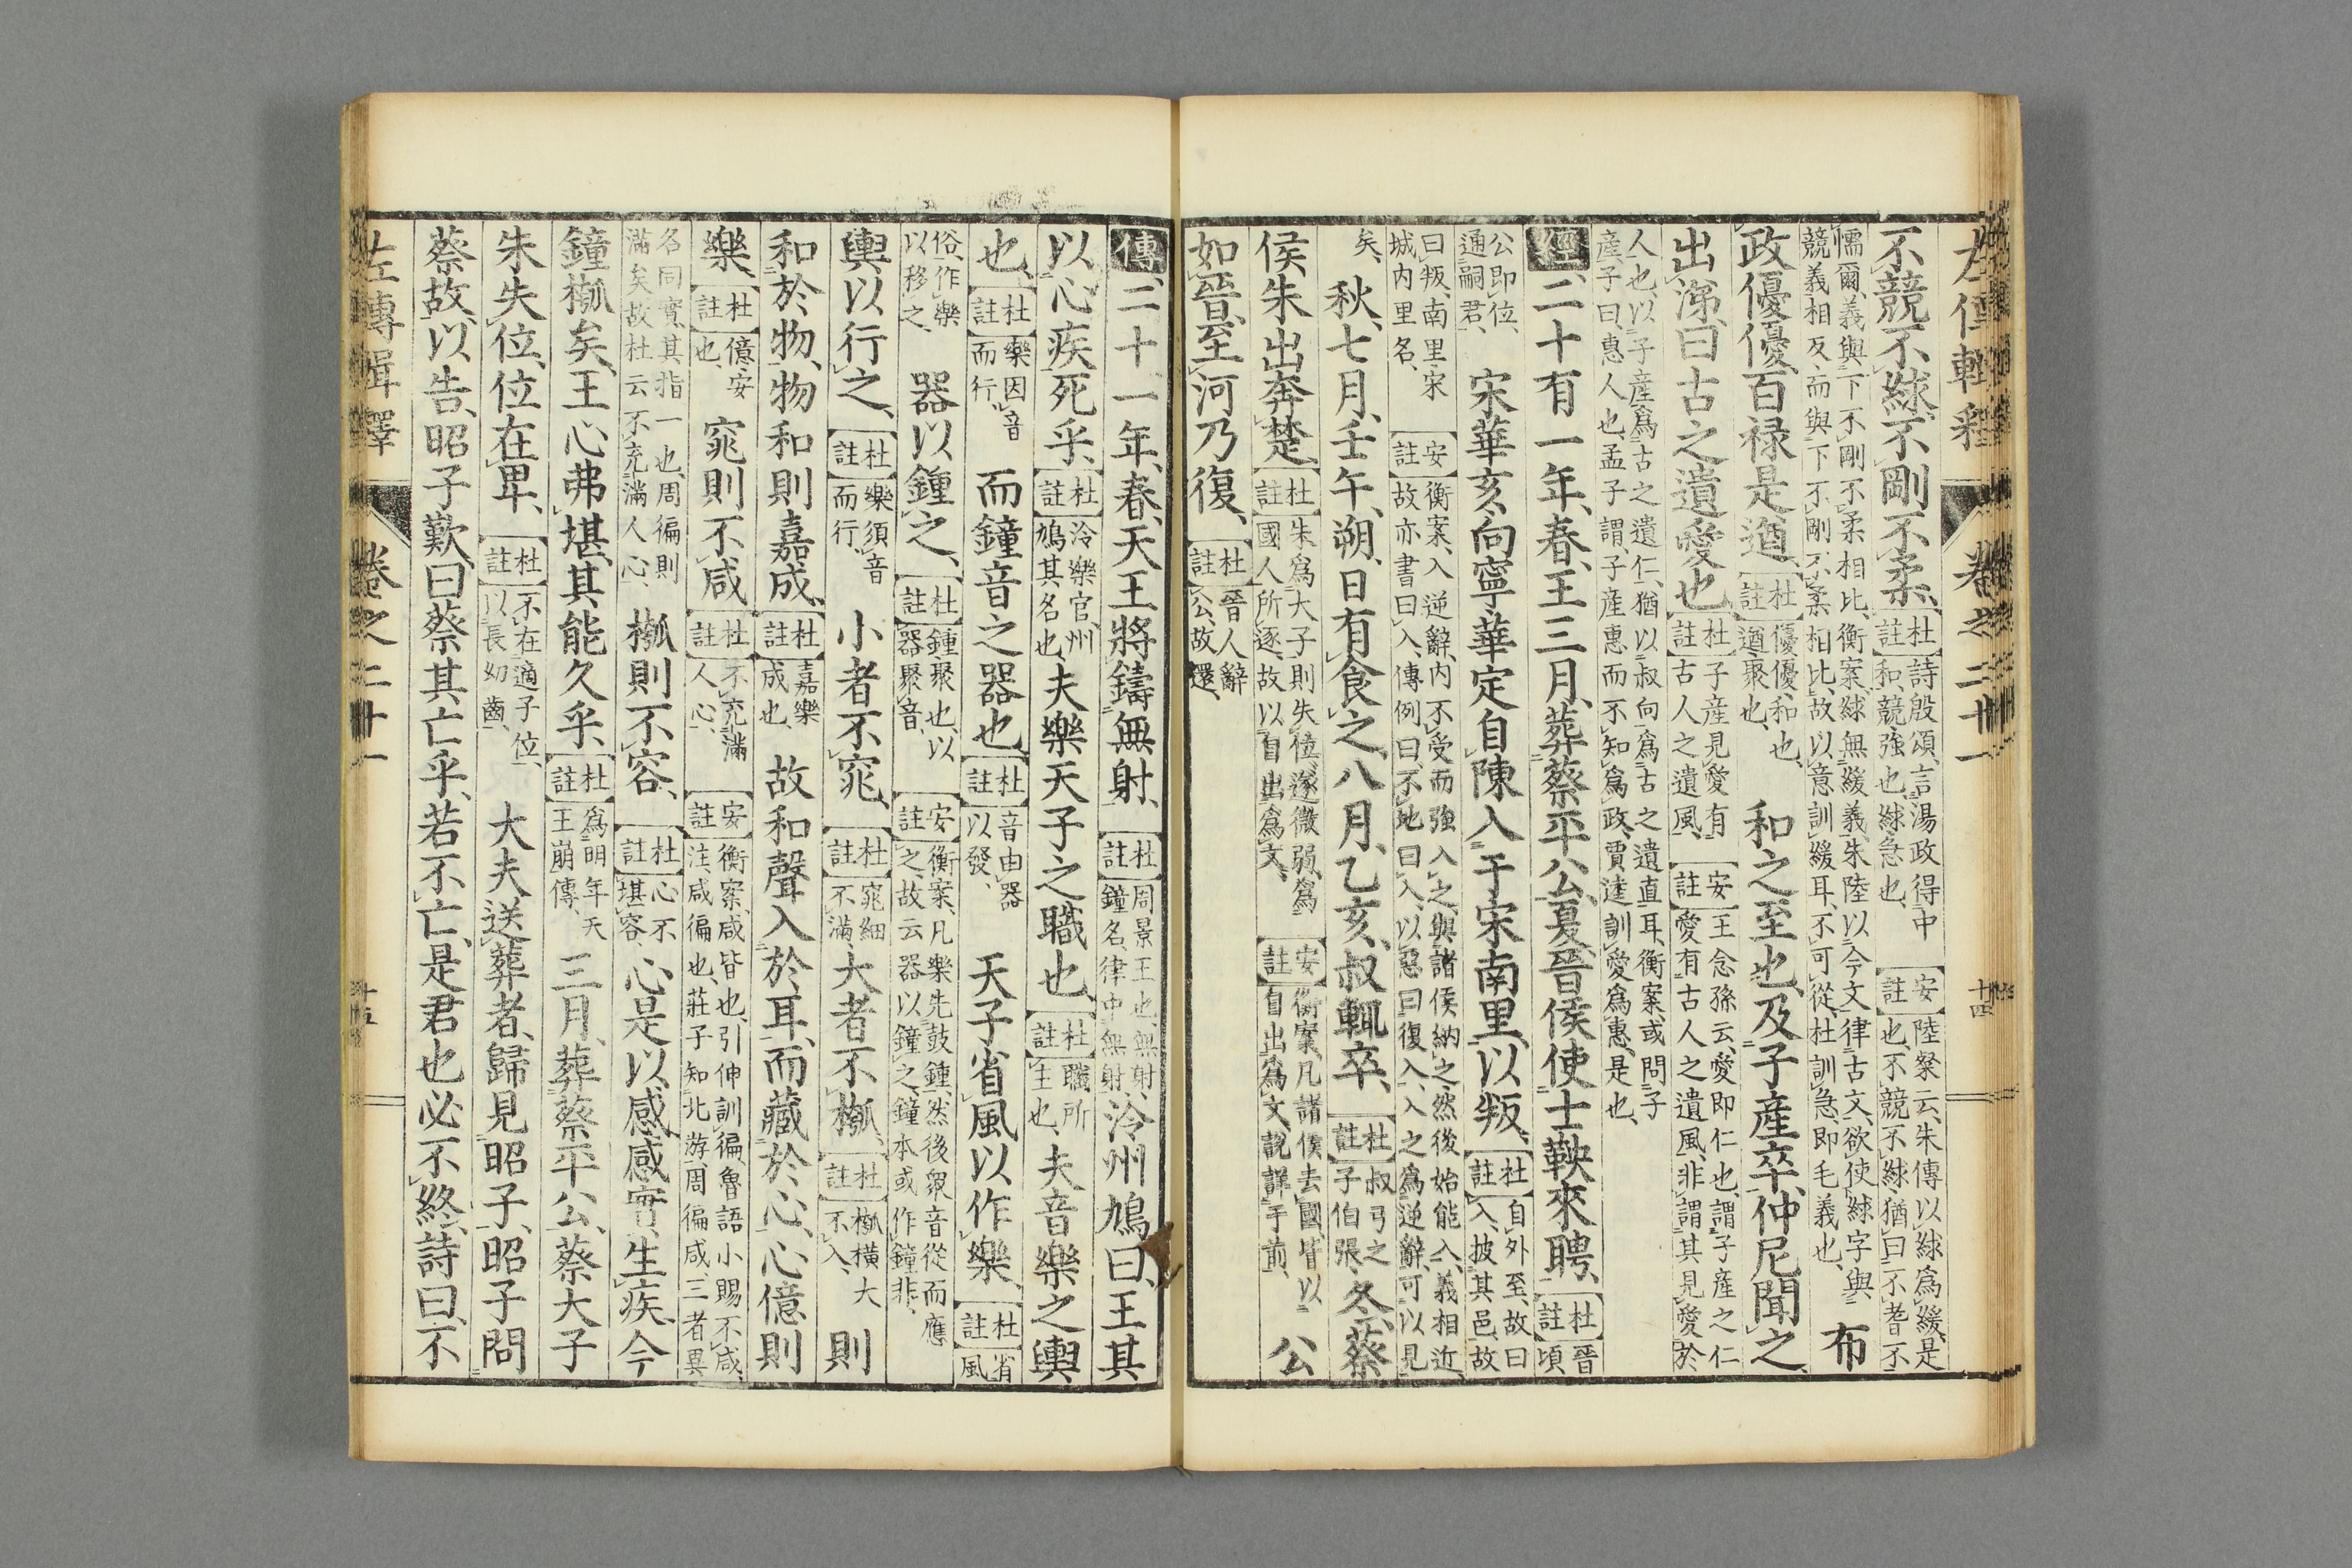 左傳輯釋 卷之二十一 十四
不競不絿、不剛不柔、杜註詩殷頌、言湯政得中和、競、强也、絿、急也、安註陸粲云、朱傳以絿爲緩、是也、不競不絿、猶曰不耆不
懦爾、義與下不剛不柔相比、衡案、絿無緩義、朱陸以今文律古文、欲使絿字與競義相反、而與下不剛不柔相比、故以意訓緩耳、不可從、杜訓急、卽毛義也、布
政優優、百祿是遒、杜註優優、和也、遒、聚也、和之至也、及子產卒、仲尼聞之、
出涕、曰古之遺愛也、杜註子產見愛有古人之遺風、安註王念孫云、愛卽仁也、謂子產之仁愛有古人之遺風、非謂其見愛於
人也、以子產爲古之遺仁、猶以叔向爲古之遺直耳、衡案、或問子產、子曰、惠人也、孟子謂、子產惠而不知爲政、賈逵訓愛爲惠、是也、
經二十有一年、春、王三月、葬蔡平公、夏、晉侯使士鞅來聘、杜註晉頃
公卽位、通嗣君、宋華亥向寧華定自陳入于宋南里以叛、杜註自外至、故曰入、披其邑、故
曰叛、南里、宋城內里名、安註衡案、入逆辭、內不受而强入之、與諸侯納之、然後始能入、義相近、故亦書曰入、傳例曰、不地曰入、以惡曰復入、入之爲逆辭、可以見
矣、秋、七月、壬午、朔、日有食之、八月、乙亥、叔輒卒、杜註叔弓之子伯張、冬、蔡
侯朱出奔楚、杜註朱爲大子則失位、遂微弱、爲國人所逐、故以自出爲文、安註衡案、凡諸侯去國、皆以自出爲文、說詳于前、公
如晉、至河乃復、杜註晉人辭公、故還、
傳二十一年、春、天王將鑄無射、杜註周景王也、無射、鐘名、律中無射、泠州鳩曰、王其
以心疾死乎、杜註泠、樂官、州鳩、其名也、夫樂天子之職也、杜註職、所主也、夫音樂之輿、
也、杜註樂因音而行、而鐘音之器也、杜註音由器以發、天子省風以作樂、杜註省風
俗、作樂以移之、器以鍾之、杜註鍾、聚也、以器聚音、安註衡案、凡樂先鼓鍾、然後衆音從而應之、故云器以鐘之、鐘本或作鍾非、
輿以行之、杜註樂須音而行、小者不窕、杜註窕、細不滿、大者不摦、杜註摦、橫大不入、則
和於物、物和則嘉成、杜註嘉樂成也、故和聲入於耳、而藏於心、心億則
樂、杜註億、安也、窕則不咸、杜註不充滿人心、安註衡案、咸、皆也、引伸訓徧、魯語小賜不咸、注、咸、徧也、莊子知北游、周徧咸三者異
名同實、其指一也、周徧則滿矣、故杜云不充滿人心、摦則不容、杜註心不堪容、心是以感、感實生疾、今
鐘摦矣、王心弗堪、其能久乎、杜註爲明年天王崩傳、三月、葬蔡平公、蔡大子
朱失位、位在卑、杜註不在適子位、以長幼齒、大夫送葬者、歸見昭子、昭子問
蔡故、以告、昭子歎曰、蔡其亡乎、若不亡、是君也必不終、詩曰、不
左傳輯釋 卷之二十一 十五